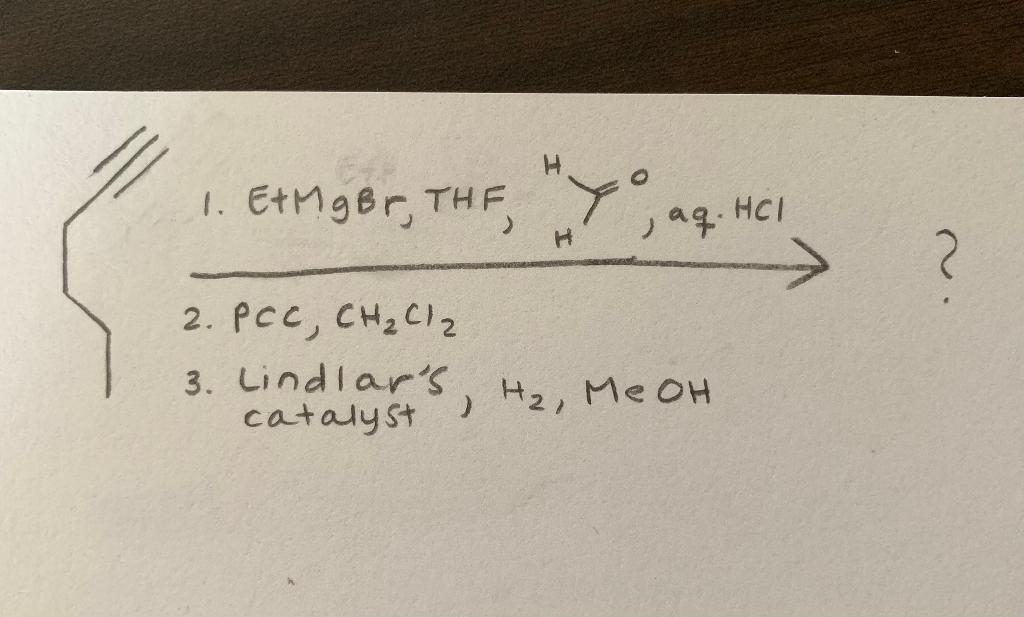 H
O
1. EtMgBr, THF, , aq. HCl
H
?
2. PCC, CH2Cl2
3. Lindlar's , H2, MeOH
catalyst